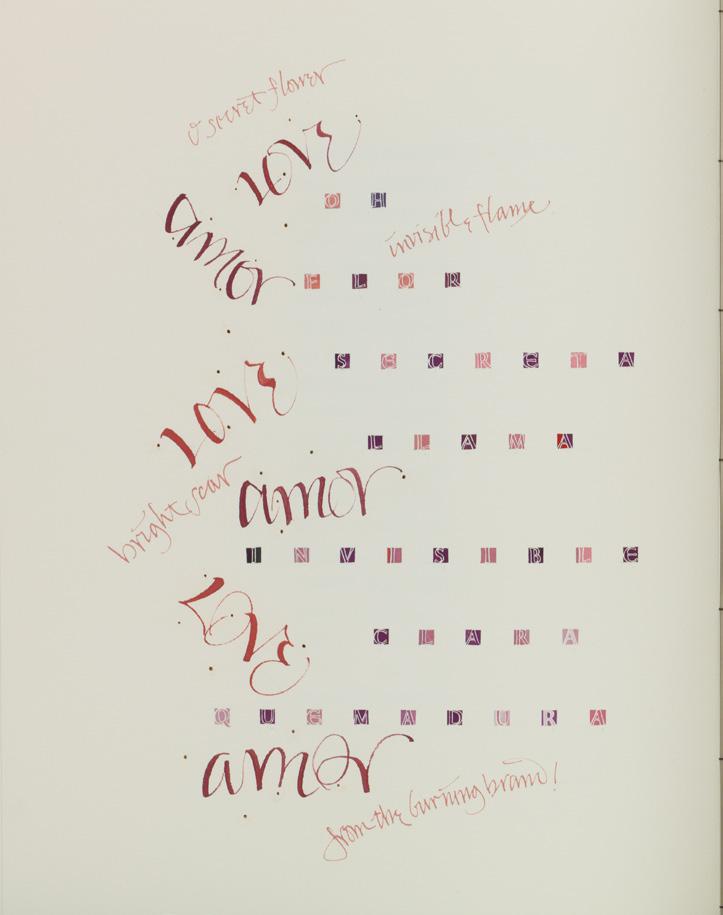 o secret flower
LOVE
OH
amor
invisible flame
FLOR
SECRETA
LOVE
LLAMA
bright scar
amor
INVISIBLE
LOVE
CLARA
QUEMADURA
amor
from the burning brand!